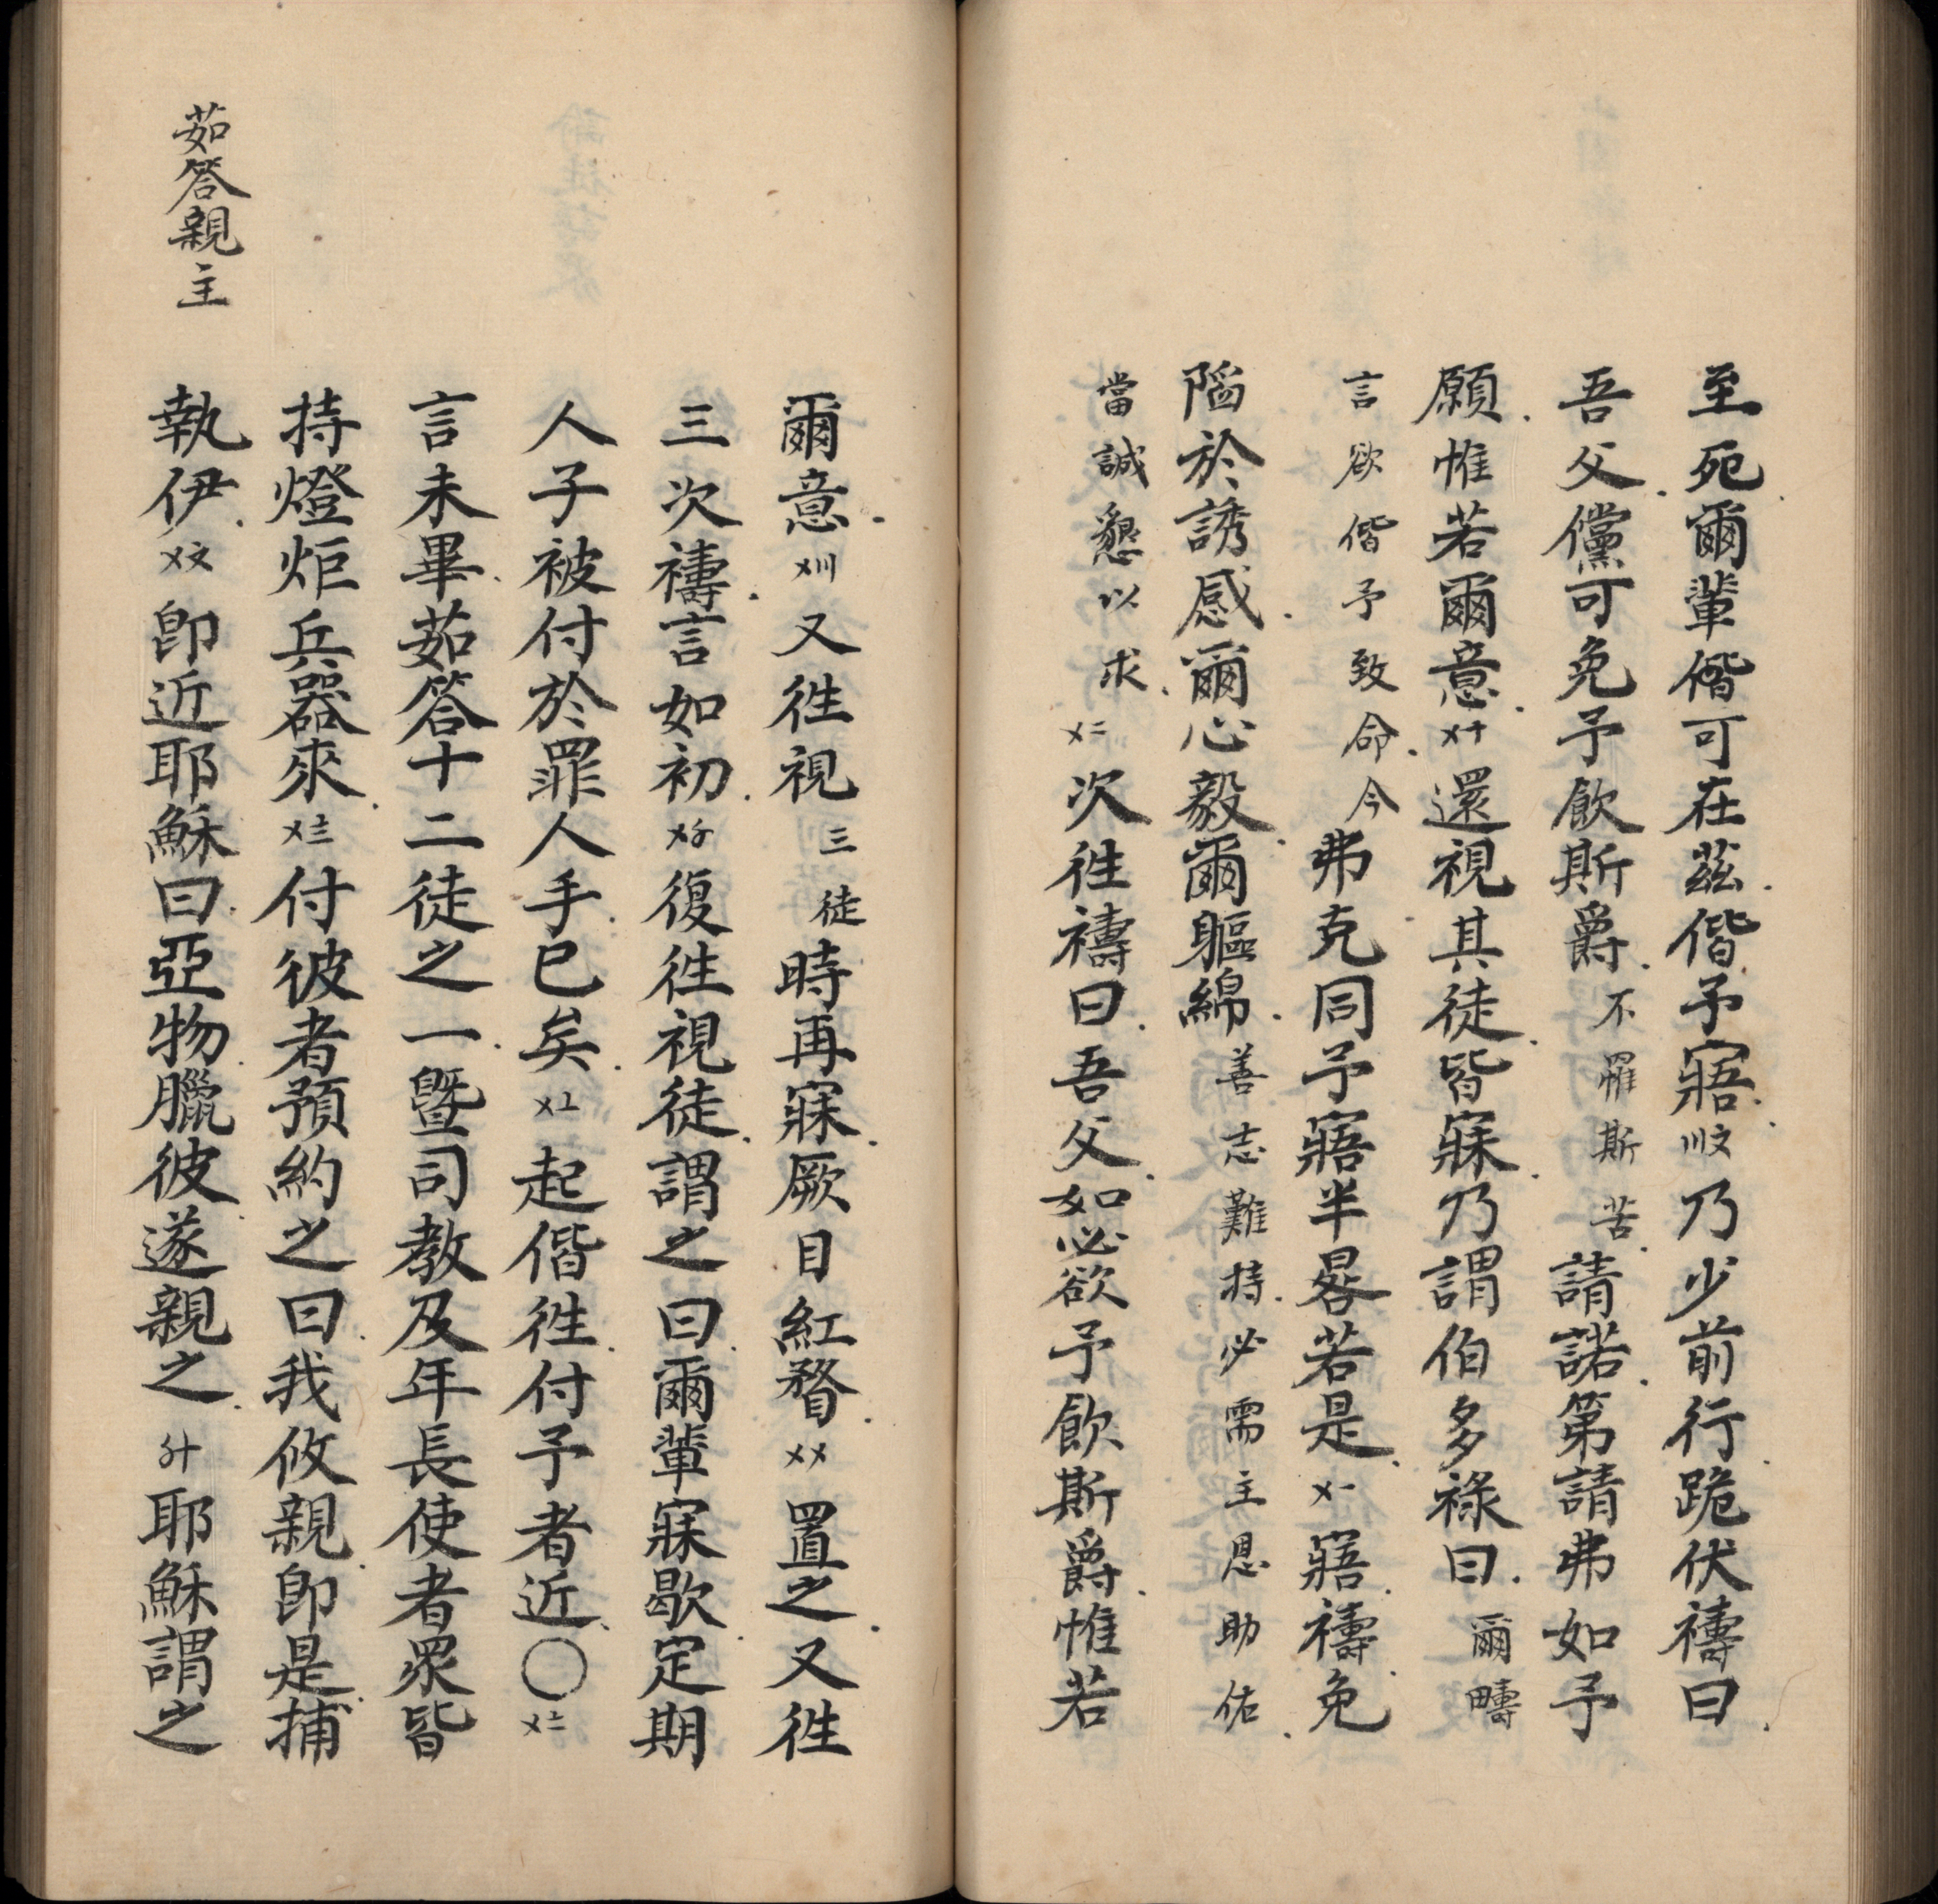 至死爾輩偕可在茲偕予寤〣〩乃少前行跪伏禱曰
吾父儻可免予飲斯爵不罹斯苦請諾第請弗如予
願惟若爾意〤十還視其徒皆寐乃謂伯多祿曰爾疇
言欲偕予致命今弗克同予寤半晷若是〤一寤禱免
陷於誘感爾心毅爾軀綿善志難持必需主恩助佑
當誠懇以求〤二次徃禱曰吾父如必欲予飲斯爵惟若
爾意〤〣又徃視三徒時再寐厥目紅瞀〤〤置之又徃
三次禱言如初〤〥復徃視徒謂之曰爾輩寐歇定期
人子被付於罪人手已矣〤〦起偕徃付予者近〇〤〧
言未畢茹答十二徒之一暨司教及年長使者眾皆
持燈炬兵器來〤〨付彼者預約之曰我攸親卽是捕
執伊〤〩卽近耶穌曰亞物臘彼遂親之〥十耶穌謂之
茹答親主